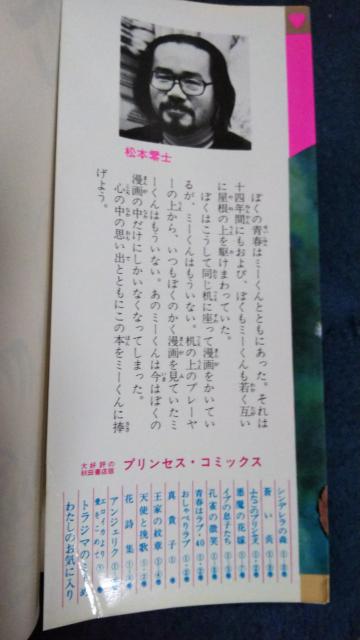 松本零士
ぼくの青春はミーくんとともにあった。それは
十四年間にもおよび、ぼくもミーくんも若く互い
に屋根の上を駆けまわっていた。
ぼくはこうして同じ机に座って漫画をかいてい
るが、ミーくんはもういない。机の上のプレーヤ
ーの上から、いつもぼくのかく漫画を見ていたミ
ーくんはもういない。あのミーくんは今はぼくの
漫画の中だけにしかいなくなってしまった。
心の中の思い出とともにこの本をミーくんに捧
げよう。
大好評の
秋田書店版
プリンセス・コミックス
シンデレラの森
蒼い炎
ふたごのプリンセス
悪魔の花嫁
イブの息子たち
孔雀の微笑
青春はラブ・40
おしゃべりラブ
真貴子
王家の紋章
天使と挽歌
花詩集
アンジェリク
エロイカより
愛をこめて
トラジマのミーめ
わたしのお気に入り